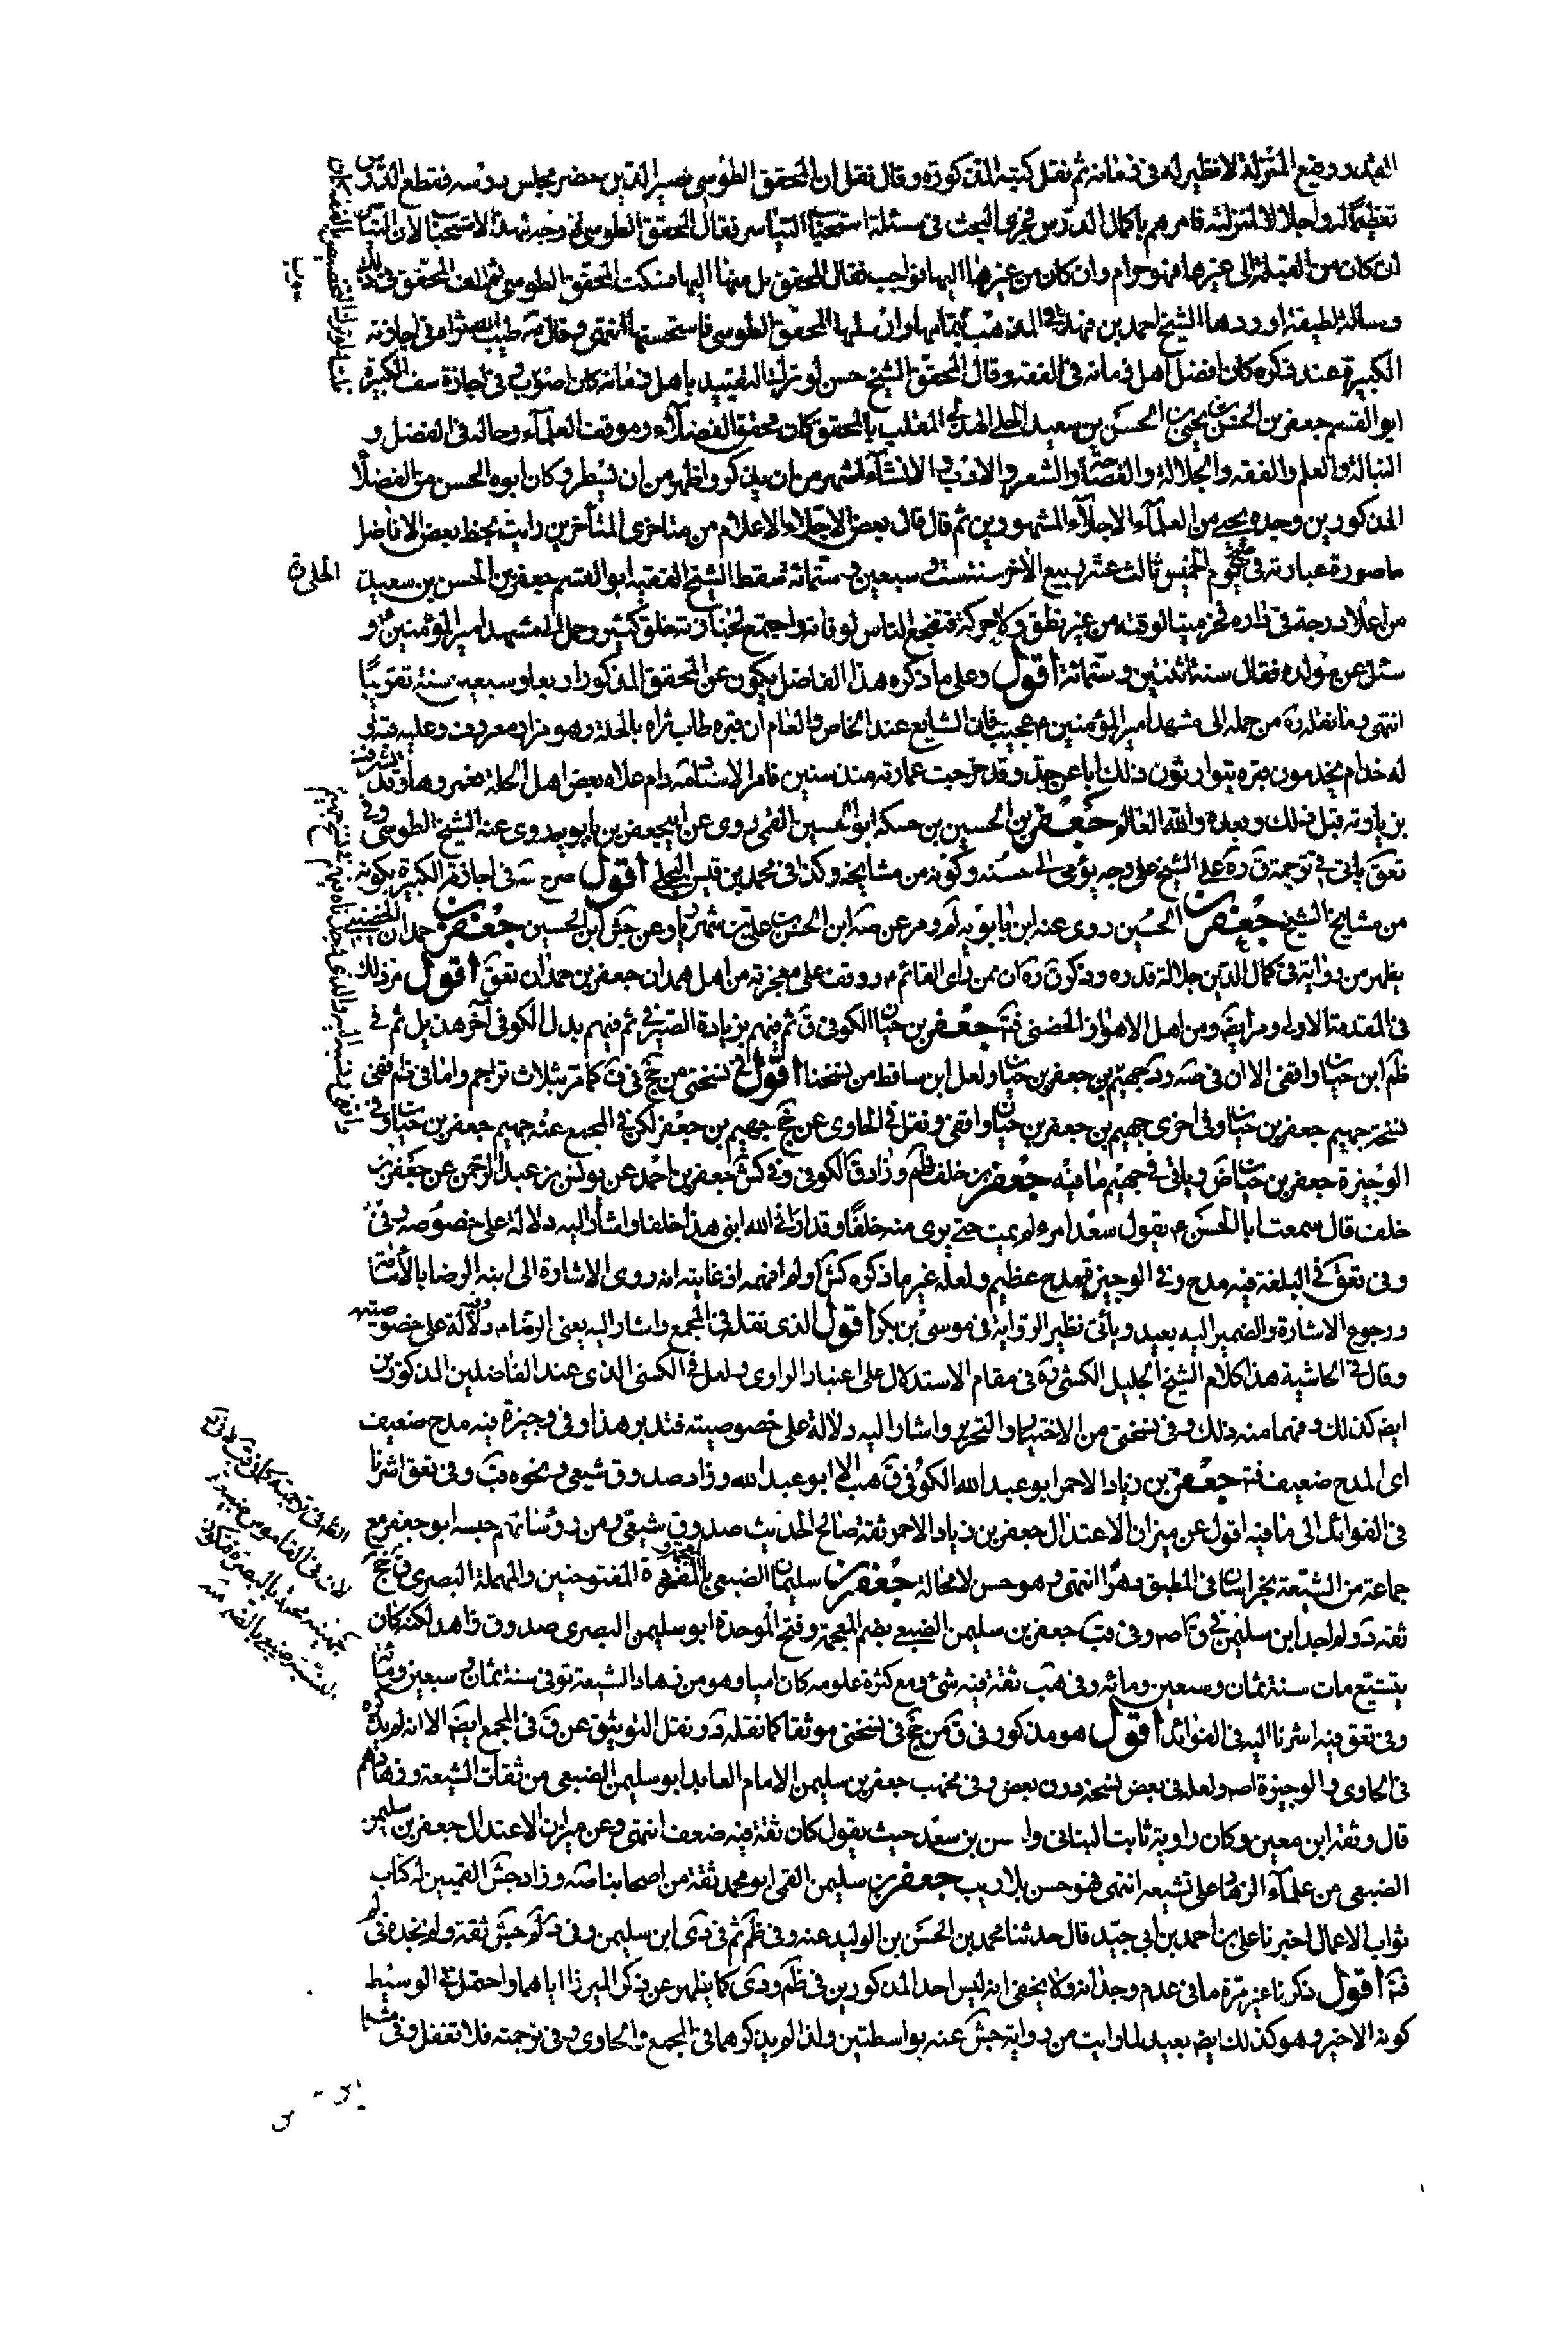 القدر رفيع المنزلة لا نظير له في زمانه ثم نقل كتبه المذكورة وقال نقل ان المحقق الطوسي نصير الدين حضر مجلس درسه فقطع الدرس
تعظيما له واجلالا لمنزلته فامرهم باكمال الدرس فجرى البحث في مسئلة استحباب التياسر فقال المحقق الطوسي لا وجه لهذا الاستحباب لان التياسر
ان كان من القبلة الى غيرها فهو حرام وان كان من غيرها اليها فواجب فقال المحقق بل منها اليها فسكت المحقق الطوسي ثم الف المحقق في ذلك
رسالة لطيفة اوردها الشيخ احمد بن فهد في المذهب بتمامها وارسلها المحقق الطوسي فاستحسنها انتهى وقال مة طيب الله ثراه في اجازته
الكبيرة عند ذكره كان افضل اهل زمانه في الفقه وقال المحقق الشيخ حسن لو ترك التقييد باهل زمانه كان اصوب وفي اجازة سف الكبيرة
ابو القسم جعفر بن الحسن بن يحيى بن الحسن بن سعيد الحلي الهذلي الملقب بالمحقق كان محقق الفضلاء ومدقق العلماء وحاله في الفضل و
النبالة والعلم والفقه والجلالة والفصاحة والشعر والادب والانشاء اشهر من ان يذكر واظهر من ان يسطر وكان ابوه الحسن من الفضلاء
المذكورين وجده يحيى من العلماء الاجلاء المشهورين ثم قال قال بعض الاجلاء الاعلام من متاخري المتأخرين رايت بخط بعض الافاضل
ما صورة عبارته في صبح يوم الخميس ثالث عشر ربيع الاخر سنة ست وسبعين وستمائة سقط الشيخ الفقيه ابو القسم جعفر بن الحسن بن سعيد الحلي ره
من اعلا درجة في داره فخر ميتا لوقته من غير نطق ولا حركة فتفجع الناس لوفاته واجتمع لجنازته خلق كثير وحمل الى مشهد امير المؤمنين ع و
سئل عن مولده فقال سنة اثنتين وستمائة اقول وعلى ما ذكره هذا الفاضل يكون عن المحقق المذكور اربعا وسبعين سنة تقريبا
انتهى وما نقله ره من حمله الى مشهد امير المؤمنين ع عجيب فان الشايع عند الخاص والعام ان قبره طاب ثراه بالحلة وهو مزار معروف وعليه قبة و
له خدام يخدمون قبره يتوارثون ذلك ابا عن جد وقد خربت عمارته منذ سنين فامر الاستاد دام علاه بعض اهل الحلة فعمروها وقد تشرفت
بزيارته قبل ذلك وبعده والله العالم جعفر بن الحسين بن حسكه ابو الحسين القمي روى عن ابي جعفر بن بابويه روى عنه الشيخ الطوسي وفي
تعق ياتي في ترجمة ق ره على الشيخ على وجه يؤمى الى حسنه وكونه من مشايخه وكذا في محمد بن قيس البجلي اقول صرح مة في اجازته الكبيرة بكونه
من مشايخ الشيخ جعفر بن الحسين روى عنه ابن بابويه لم ومر عن صه ابن الحسن بن علي بن شهريار وعن جش ابن الحسين جعفر بن حمدان الحضيني
يظهر من رواية في كمال الدين جلالة قدره وذكر ق ره ان ممن راى القائم ع ووقف على معجزته من اهل همدان جعفر بن حمدان تعق اقول مر ذلك
في المقدمة الاولى ومر ايضا ومن اهل الاهواز الحضيني فت جعفر بن حيان الكوفي ق ثم فيهم بزيادة الصيرفي ثم فيهم بدل الكوفي آخر هذيل ثم في
ظم ابن حيان واقفي الا ان في صه ود جهيم بن جعفر بن حيان ولعل ابن ساقط من نسخنا اقول في نسختي من جخ في ق كما مر بثلاث تراجم واما في ظم ففي
نسخة جهيم جعفر بن حيان وفي اخرى جهيم بن جعفر بن حيان واقفي ونقل في الحاوي عن جخ جهيم بن جعفر لكن في المجمع عنه جهيم جعفر بن حيان وفي
الوجيزة جعفر بن حيان ض وياتي في جهيم ما فيه جعفر بن خلف ظم وزاد ق الكوفي وفي كش جعفر بن احمد عن يونس بن عبد الرحمن عن جعفر بن
خلف قال سمعت ابا الحسن ع يقول سعد امرء لم يمت حتى يرى منه خلفا وقد اراني الله ابني هذا خلفا واشار اليه دلالة على خصوصه
وفي تعق في البلغة فيه مدح وفي الوجيزة مدح عظيم ولعله غير ما ذكره كش او لم افهمه اذ غايته انه روى الاشارة الى ابنه الرضا بالامامة
ورجوع الاشارة والضمير اليه بعيد وياتي نظير الرواية في موسى بن بكر اقول الذي نقله في المجمع واشار اليه يعني الرضا ع دلالة على خصوصيته
وقال في الحاشية هذا كلام الشيخ الجليل الكشي ره في مقام الاستدلال على اعتبار الراوي ولعل في الكشي الذي عند الفاضلين المذكورين
ايضا كذلك وفهما منه ذلك وفي نسختي من الاختيار والتحرير واشار اليه دلالة على خصوصيته فتدبر هذا وفي وجيزة فيه مدح ضعيف
اى المدح ضعيف فت جعفر بن زياد الاحمر ابو عبد الله الكوفي ق هب الا ابو عبد الله وزاد صدوق شيعي ونحوه قب وفي تعق اشرنا
في الفوائد الى ما فيه اقول عن ميزان الاعتدال جعفر بن زياد الاحمر ثقة صالح الحديث صدوق شيعي ومن رؤسائهم حبسه ابو جعفر مع
جماعة من الشيعة بخراسان في المطبق دهرا انتهى وهو حسن لا محالة جعفر بن سليمان الضبعي بالمعجمة المفتوحتين والمهملة البصري ق جخ
ثقة د ولم اجد ابن سليمن في ق اصه وفي قب جعفر بن سليمن الضبعي بضم المعجمة وفتح الموحدة ابو سليمن البصري صدوق زاهد لكنه كان
يتشيع مات سنة ثمان وسبعين ومائة وفي هب ثقة فيه شئ ومع كثرة علومه كان اميا وهو من زهاد الشيعة توفى سنة ثمان وسبعين ومائة
وفي تعق فيه اشرنا اليه في الفوائد اقول هو مذكور في ق من جخ في نسختي موثقا كما نقله د ونقل التوثيق عن ق في المجمع ايضا الا انه لم يذكره
في الحاوي والوجيزة اصه ولعله في بعض نسخه دون بعض وفي مخهب جعفر بن سليمن الامام العابد ابو سليمن الضبعي من ثقات الشيعة وزهادهم
قال وثقه ابن معين وكان راوية ثابت البناني وا سن بن سعد حيث يقول كان ثقة فيه ضعف انتهى وعن ميزان الاعتدال جعفر بن سليمن
الضبعي من علماء الزهاد على تشيعه انتهى فهو حسن بلا ريب جعفر بن سليمن القمي ابو محمد ثقة من اصحابنا صه وزاد جش القميين له كتاب
ثواب الاعمال اخبرنا علي بن احمد بن ابي جيد قال حدثنا محمد بن الحسن بن الوليد عنه وفي ظم ثم في دى ابن سليمن وفي د لم جش ثقة ولم نجده في لم
فت اقول ذكرنا غير مرة ما في عدم وجدانه ولا يخفى انه ليس احد المذكورين في ظم ودى كما يظهر عن ذكر الميرزا اياهما واحتمل في الوسيط
كونه الاخير وهو كذلك ايضا بعيد لما رايت من رواية جش عنه بواسطتين ولذا لم يذكرهما في المجمع والحاوي في ترجمته فلا تغفل وفي مشكا